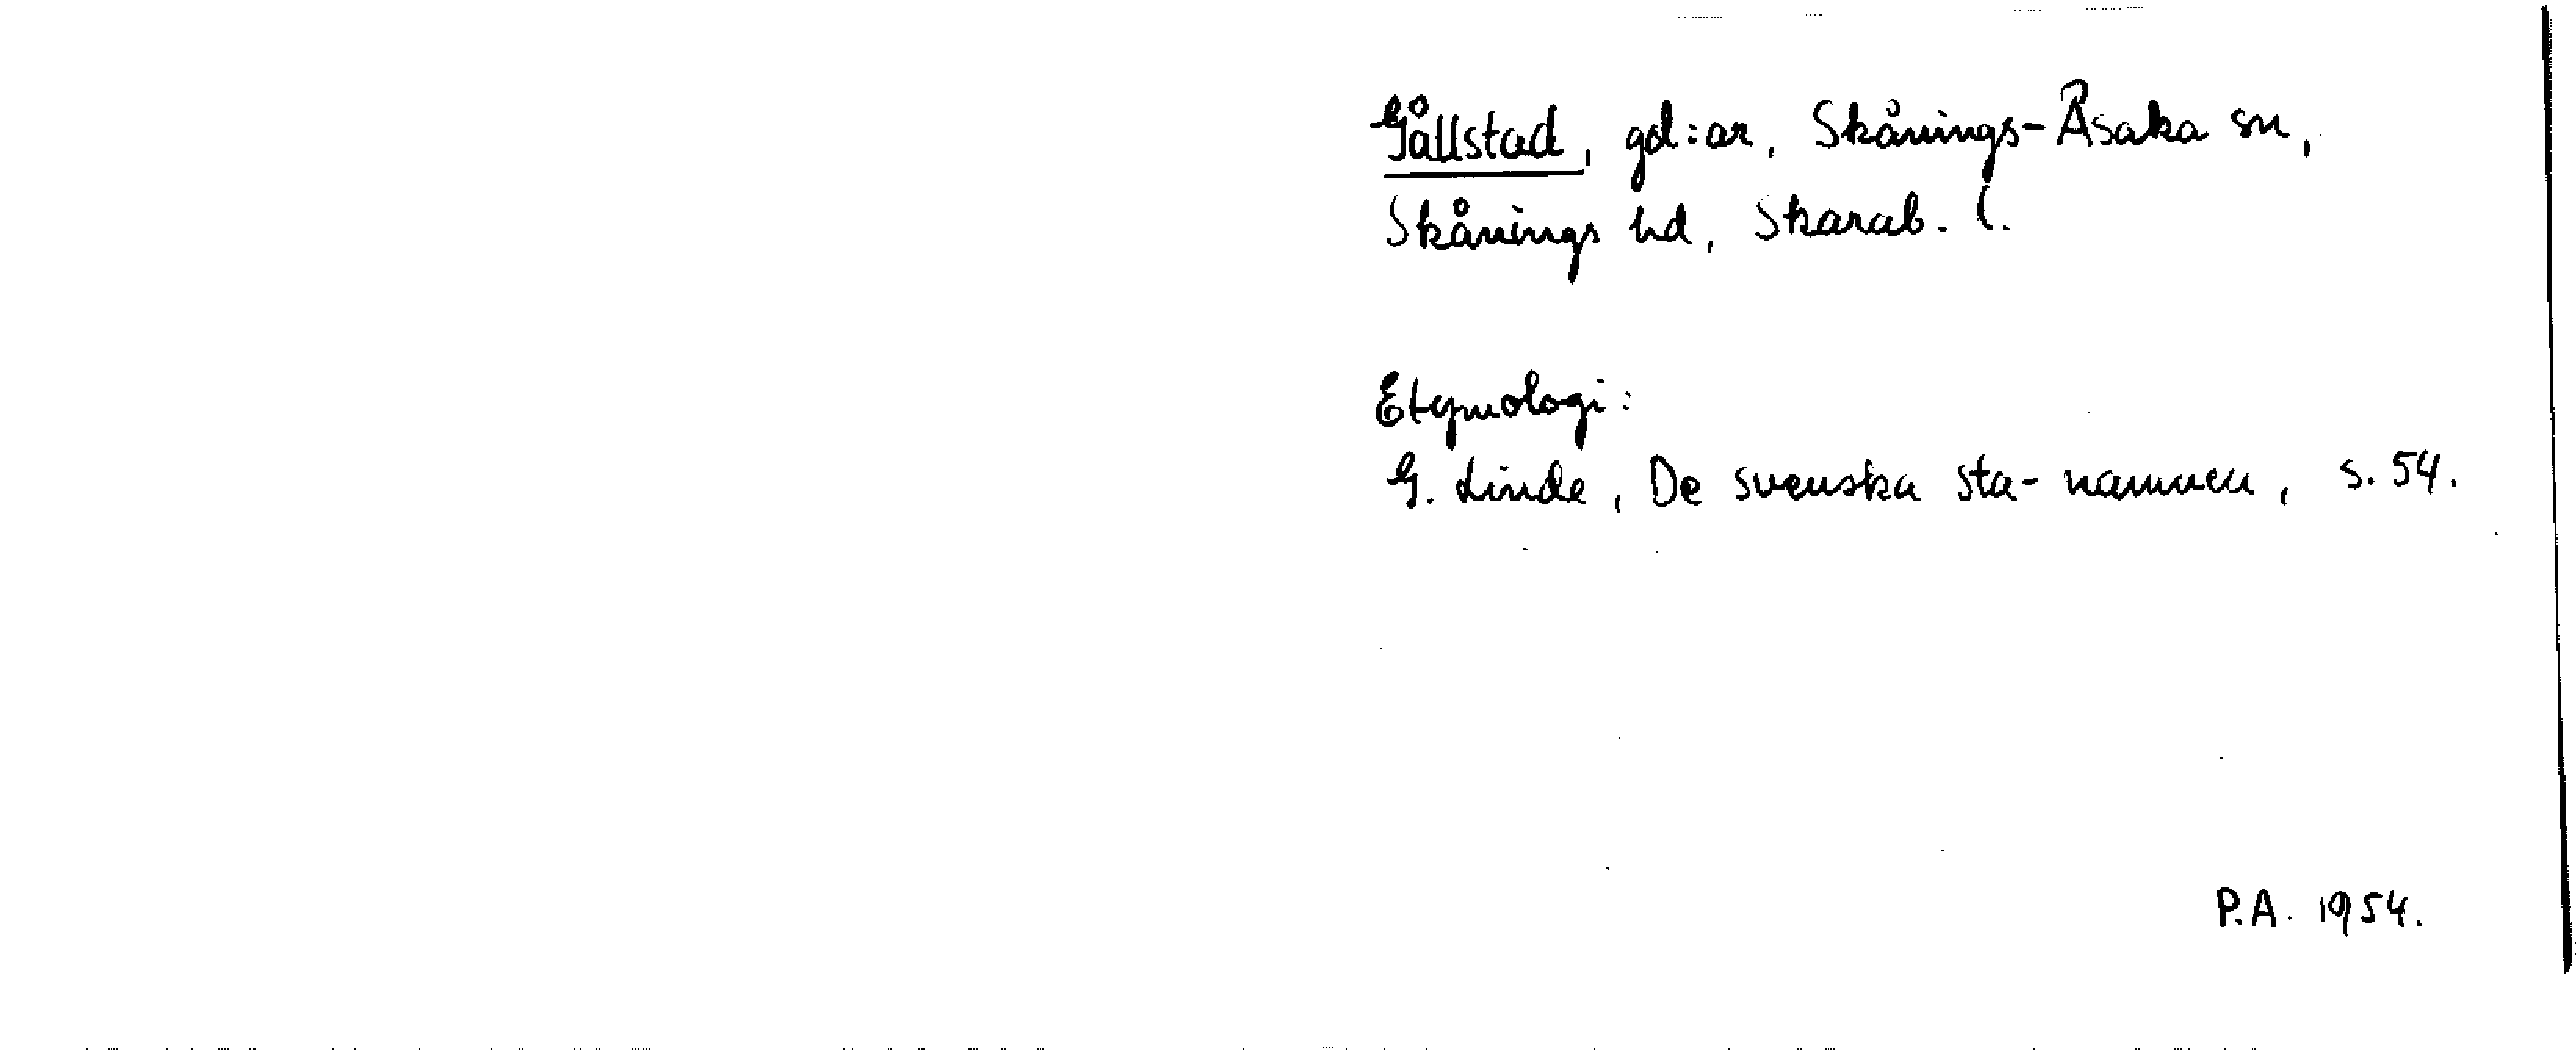 Gållstad, gd:ar, Skånings-Åsaka sn,
Skånings hd, Skarab. l.
Etymologi:
G. Linde, De svenska sta-namnen, s. 54.
P.A. 1954.